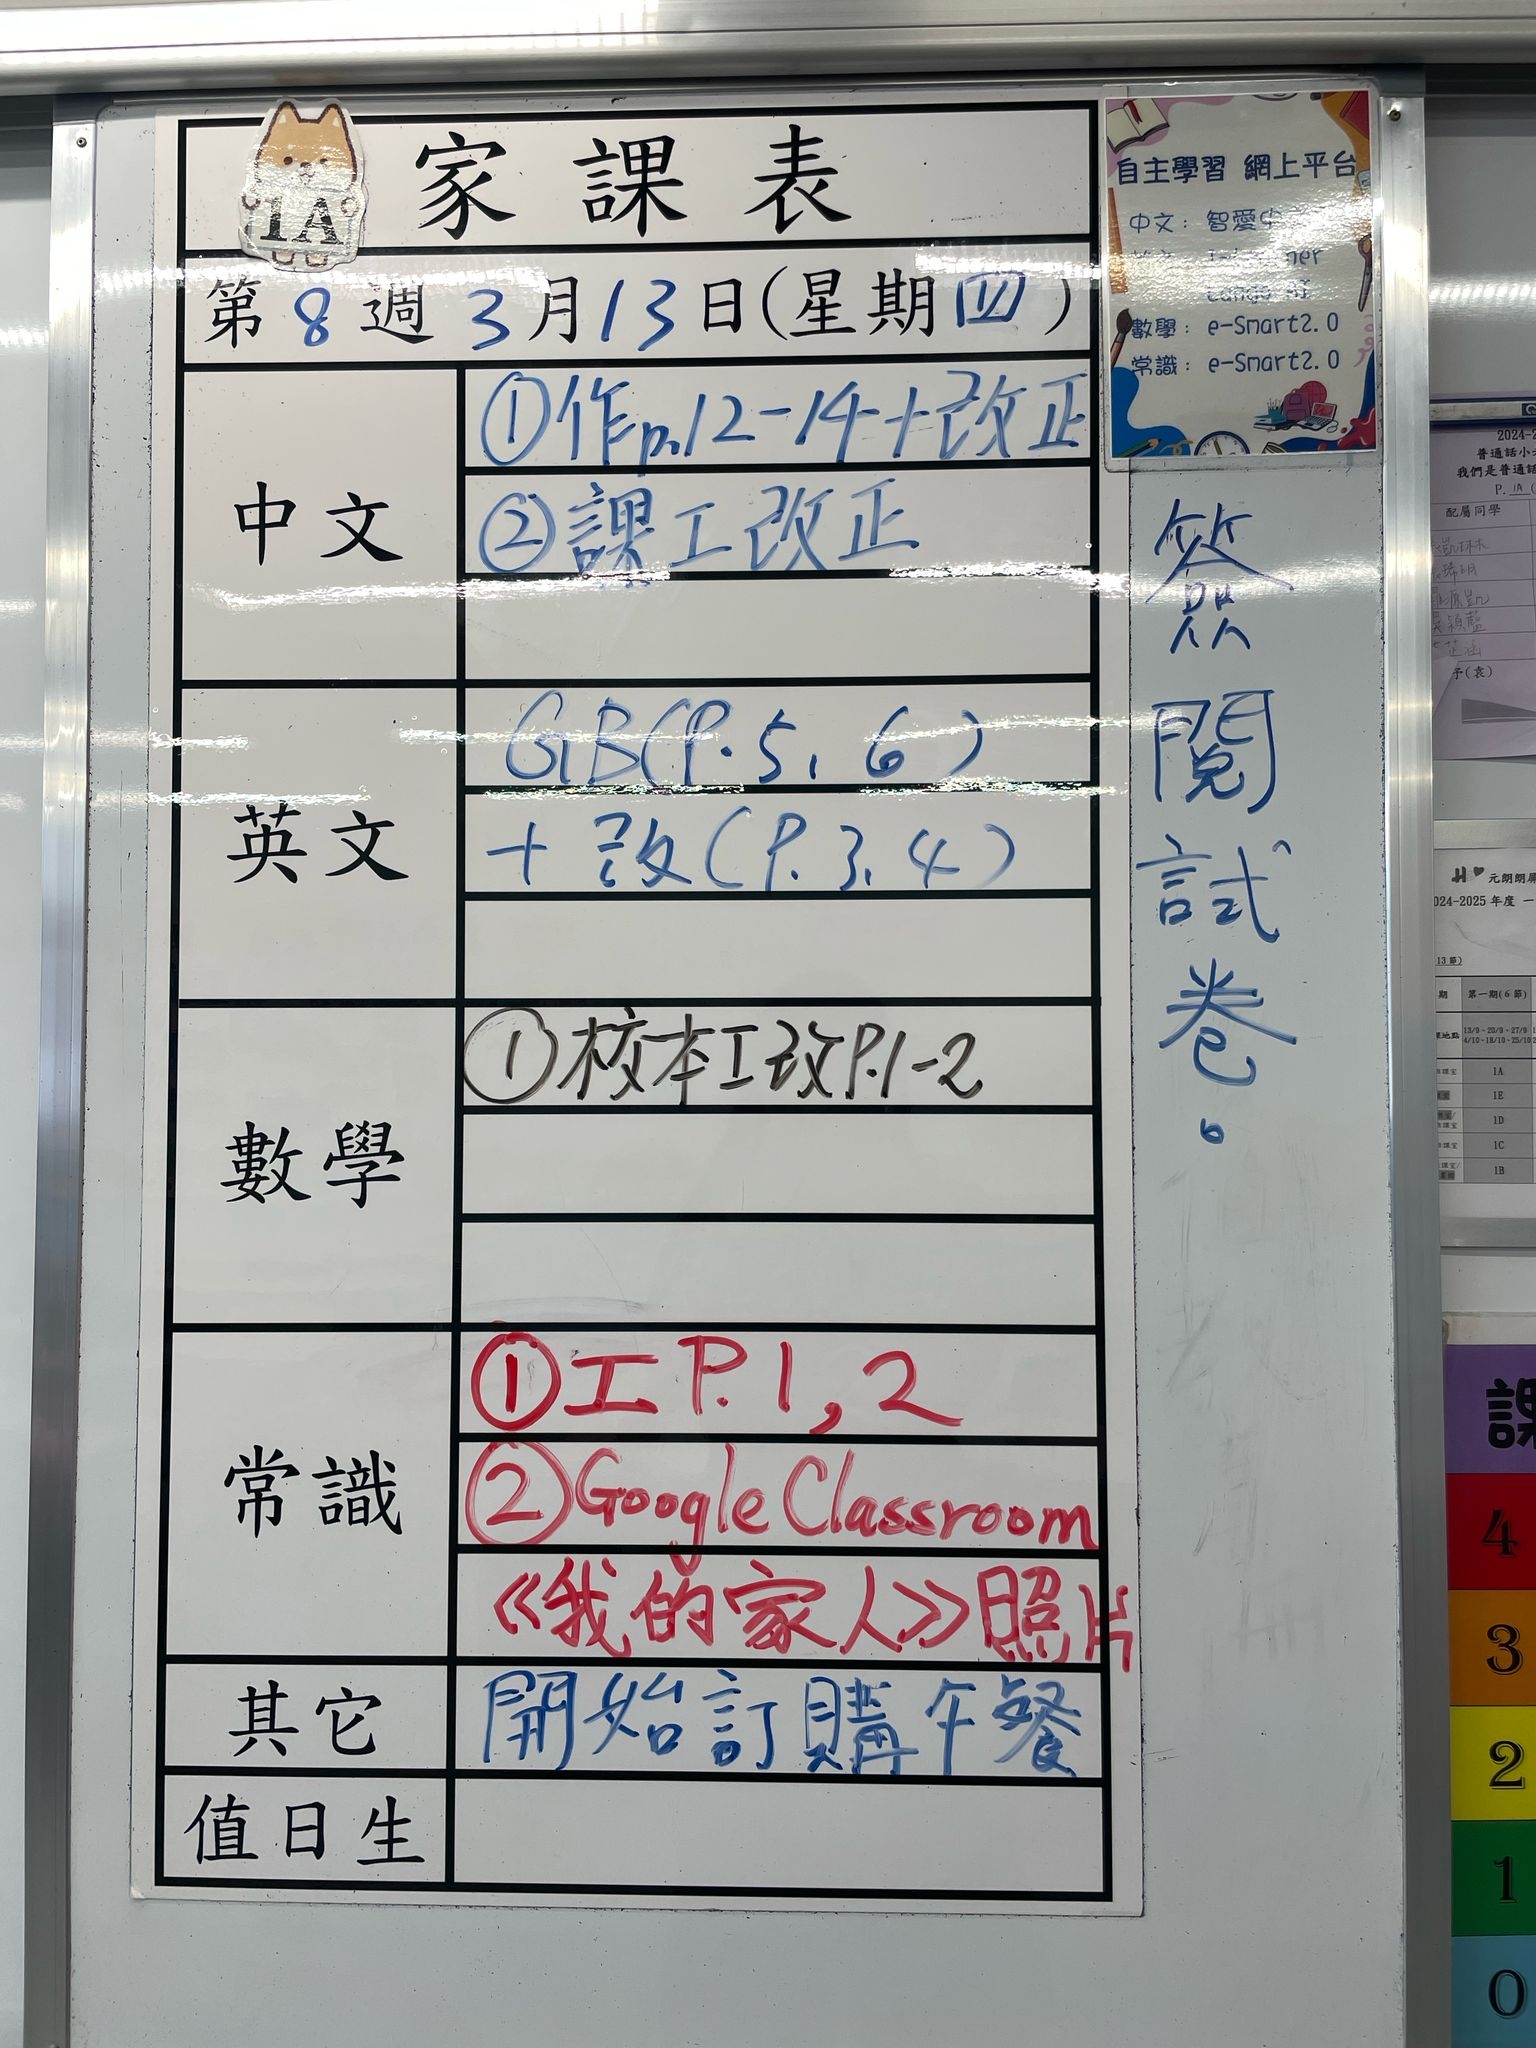 1A
家課表
第8週3月13日(星期四)
中文
①作p.12-14+改正
②課工改正
英文
GB(P.5, 6)
+改(P.3, 4)
數學
①校本工改P.1-2
常識
①工P.1,2
②Google Classroom
《我的家人》照片
其它
開始訂購午餐
值日生
自主學習 網上平台
中文: 智愛中文
數學: e-Smart2.0
常識: e-Smart2.0
簽
閱
試
卷。
普通話
我們是普通話
P. 1A
配屬同學
(袁)
元朗朗屏
024-2025 年度 一
13節)
期
第一期(6節)
13/9、20/9、27/9
4/10、18/10、25/10
1A
1E
1D
1C
1B
課
4
3
2
1
0